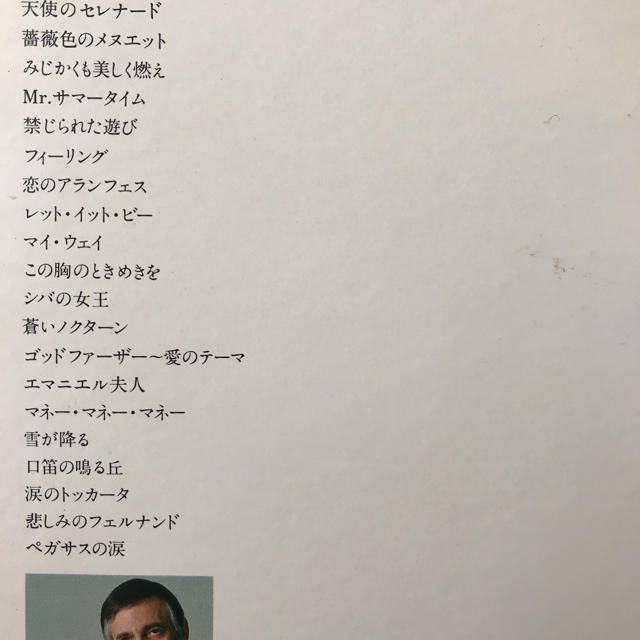 天使のセレナード
薔薇色のメヌエット
みじかくも美しく燃え
Mr.サマータイム
禁じられた遊び
フィーリング
恋のアランフェス
レット・イット・ビー
マイ・ウェイ
この胸のときめきを
シバの女王
蒼いノクターン
ゴッドファーザー〜愛のテーマ
エマニエル夫人
マネー・マネー・マネー
雪が降る
口笛の鳴る丘
涙のトッカータ
悲しみのフェルナンド
ペガサスの涙